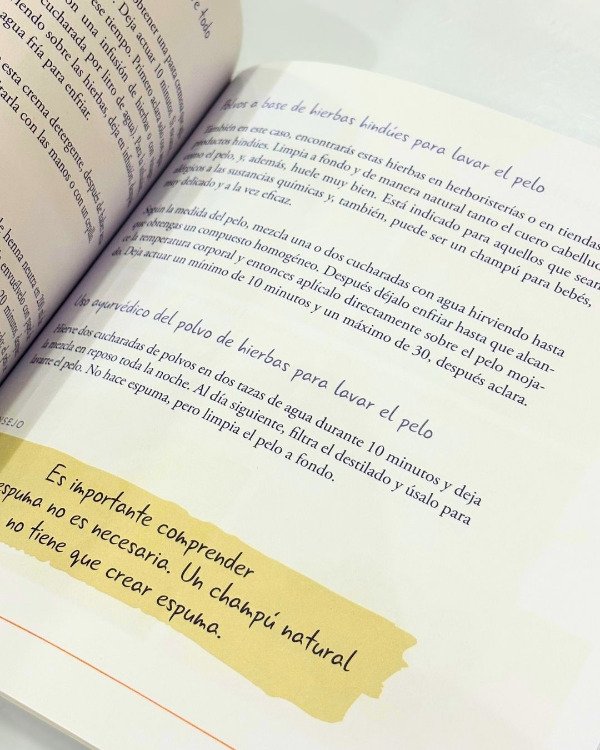 e todo
obtener una pasta cremosa
Deja actuar 10 minutos. S
ese tiempo. Primero aclara
con una infusión de hierbas
cucharada por litro de agua). Para
iendo sobre las hierbas, deja en
agua fría para enfriar.
esta crema detergente, después de
rarla con las manos o con un
de henna neutra en
Polvos a base de hierbas hindúes para lavar el pelo
También en este caso, encontrarás estas hierbas en herboristerías o en tiendas
productos hindúes. Limpia a fondo y de manera natural tanto el cuero cabelludo
como el pelo, y, además, huele muy bien. Está indicado para aquellos que sean
alérgicos a las sustancias químicas y, también, puede ser un champú para bebés,
muy delicado y a la vez eficaz.
Según la medida del pelo, mezcla una o dos cucharadas con agua hirviendo hasta
que obtengas un compuesto homogéneo. Después déjalo enfriar hasta que alcan-
ce la temperatura corporal y entonces aplícalo directamente sobre el pelo moja-
do. Deja actuar un mínimo de 10 minutos y un máximo de 30, después aclara.
Uso ayurvédico del polvo de hierbas para lavar el pelo
Hierve dos cucharadas de polvos en dos tazas de agua durante 10 minutos y deja
la mezcla en reposo toda la noche. Al día siguiente, filtra el destilado y úsalo para
lavarte el pelo. No hace espuma, pero limpia el pelo a fondo.
NSEJO
Es importante comprender
espuma no es necesaria. Un champú natural
no tiene que crear espuma.